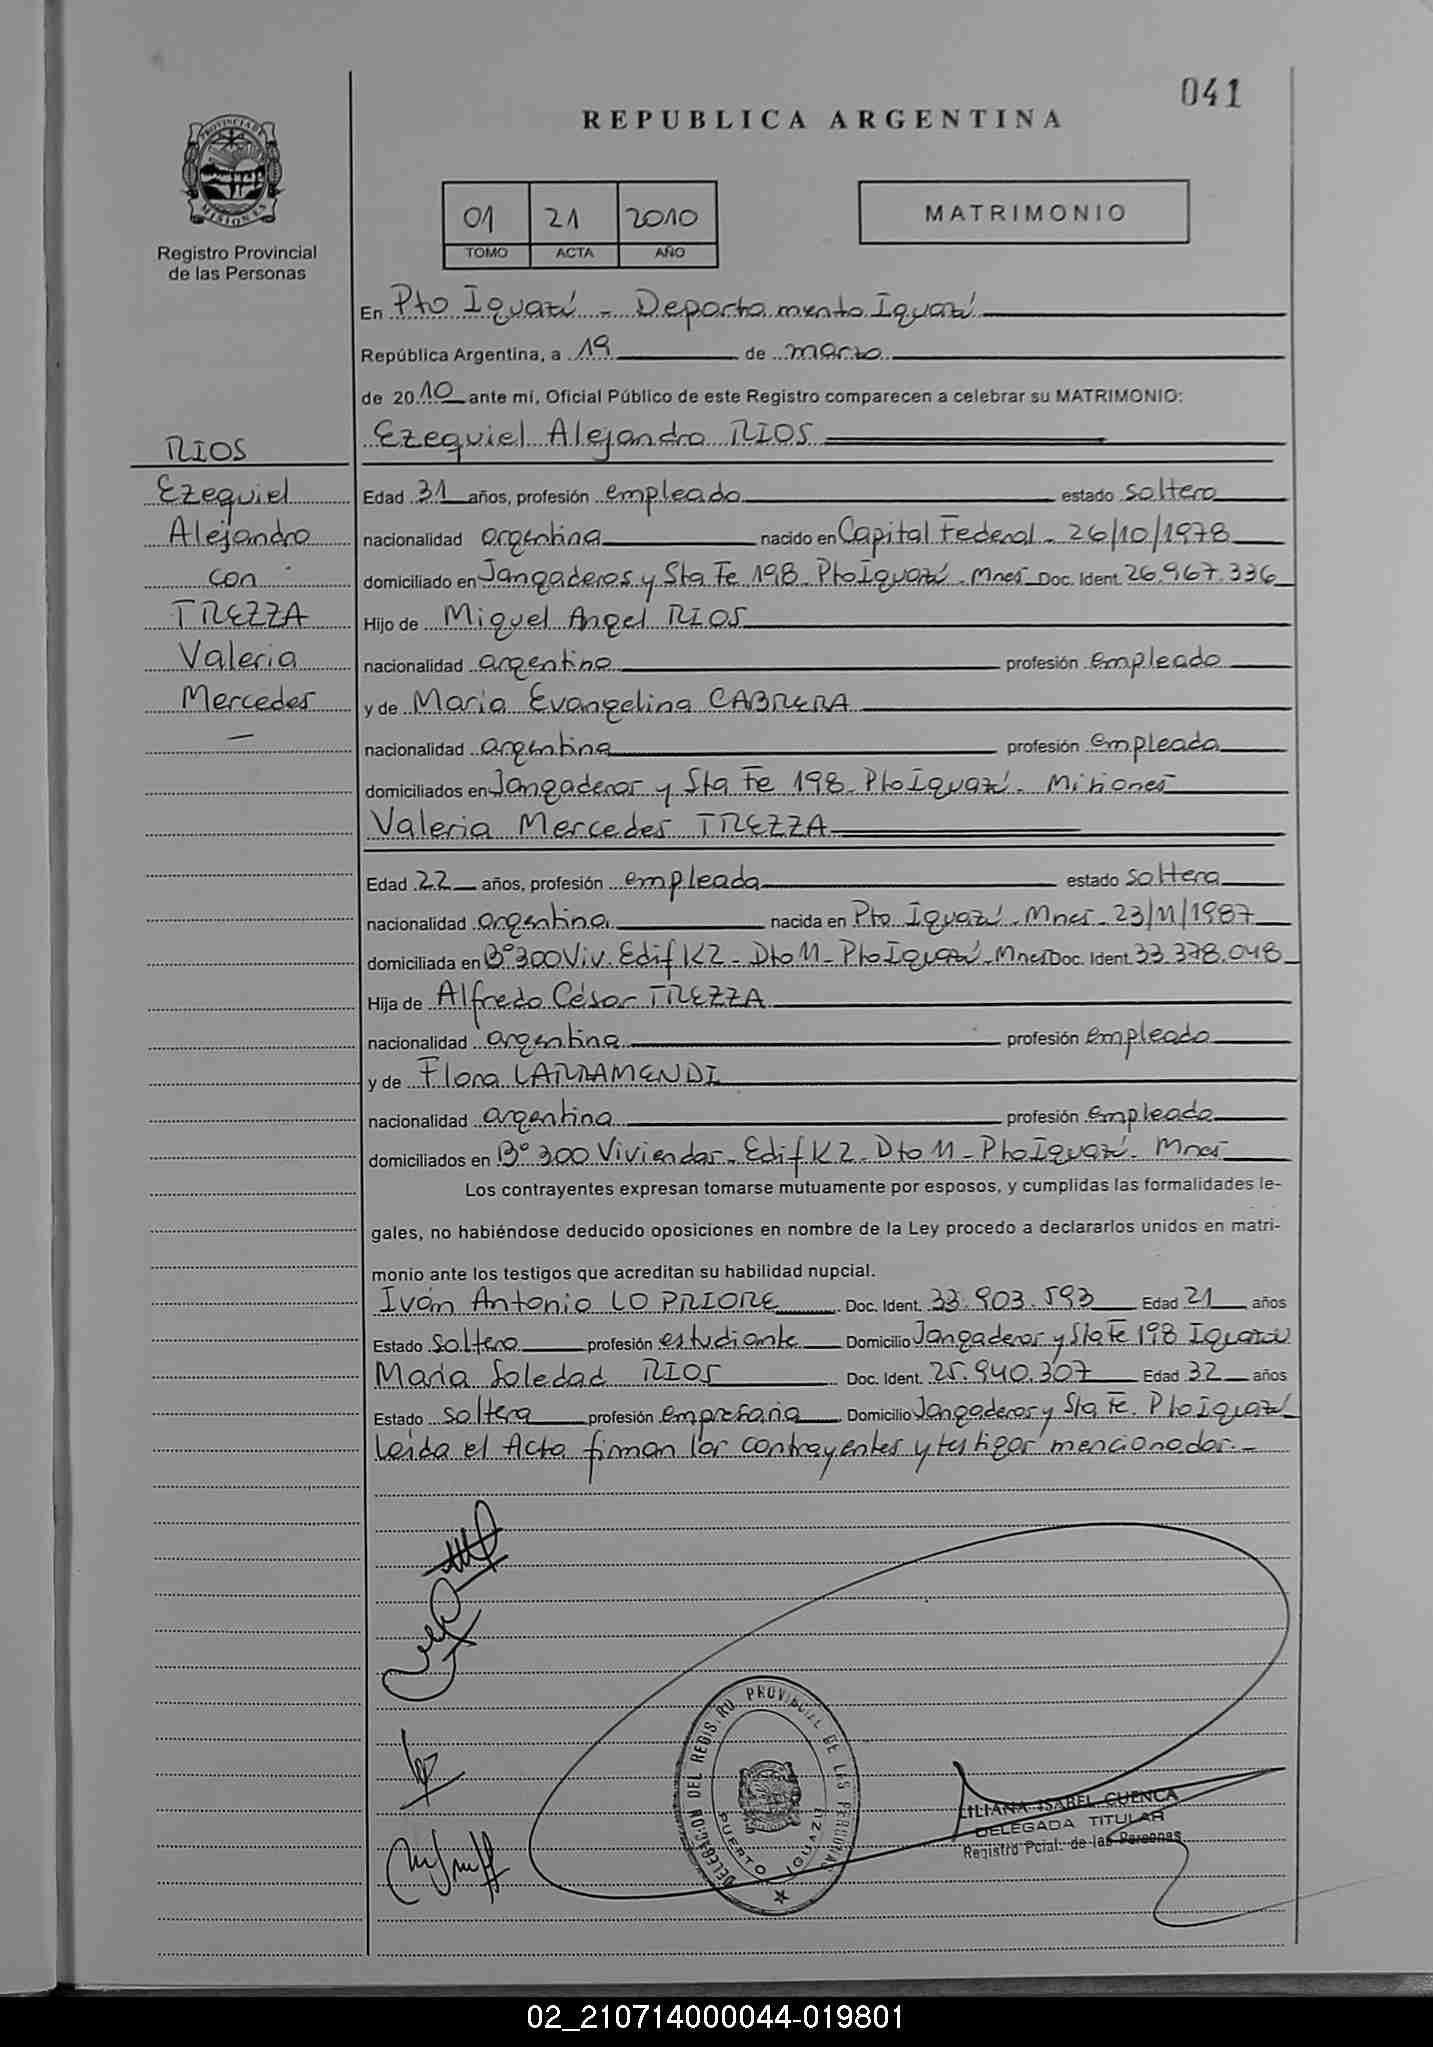 041
REPUBLICA ARGENTINA
PROVINCIA DE
MISIONES
Registro Provincial
de las Personas
01 21 2010
TOMO ACTA AÑO
MATRIMONIO
En Pto Iguazú - Departamento Iguazú
República Argentina, a 19 de marzo
de 2010 ante mí, Oficial Público de este Registro comparecen a celebrar su MATRIMONIO:
Ezequiel Alejandro RIOS
RIOS
Ezequiel
Alejandro
con
TREZZA
Valeria
Mercedes
—
Edad 31 años, profesión empleado estado soltero
nacionalidad argentina nacido en Capital Federal - 26/10/1978
domiciliado en Jangaderos y Sta Fe 198 - Pto Iguazú - Mnes Doc. Ident. 26.967.336
Hijo de Miguel Angel RIOS
nacionalidad argentino profesión empleado
y de María Evangelina CABRERA
nacionalidad argentina profesión empleada
domiciliados en Jangaderos y Sta Fe 198 - Pto Iguazú - Misiones
Valeria Mercedes TREZZA
Edad 22 años, profesión empleada estado soltera
nacionalidad argentina nacida en Pto Iguazú - Mnes - 23/11/1987
domiciliada en Bº 300 Viv. Edif K2 - Dto 11 - Pto Iguazú - Mnes Doc. Ident. 33.378.048
Hija de Alfredo César TREZZA
nacionalidad argentina profesión empleado
y de Flora LARRAMENDI
nacionalidad argentina profesión empleada
domiciliados en Bº 300 Viviendas - Edif K2 - Dto 11 - Pto Iguazú - Mnes
Los contrayentes expresan tomarse mutuamente por esposos, y cumplidas las formalidades le-
gales, no habiéndose deducido oposiciones en nombre de la Ley procedo a declararlos unidos en matri-
monio ante los testigos que acreditan su habilidad nupcial.
Iván Antonio LO PRIORE Doc. Ident. 33.903.593 Edad 21 años
Estado soltero profesión estudiante Domicilio Jangaderos y Sta Fe 198 Iguazú
María Soledad RIOS Doc. Ident. 25.940.307 Edad 32 años
Estado soltera profesión empresaria Domicilio Jangaderos y Sta Fe. Pto Iguazú
Leída el Acta firman los contrayentes y testigos mencionados. -
DELEGACION DEL REGISTRO PROVINCIAL DE LAS PERSONAS
PUERTO IGUAZU
LILIANA ISABEL CUENCA
DELEGADA TITULAR
Registro Pcial. de las Personas
02_210714000044-019801